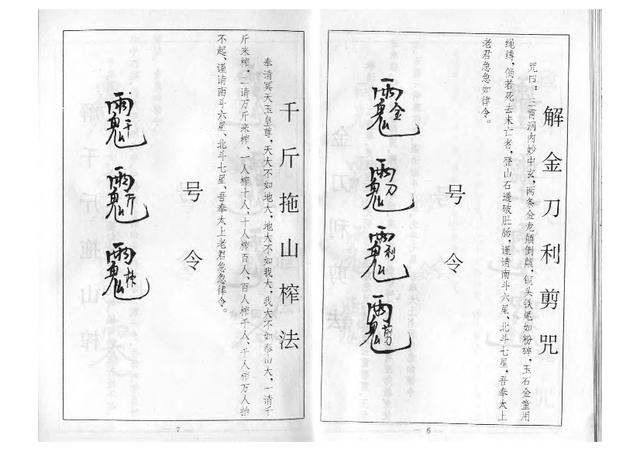 解金刀利剪咒
咒曰：三霄洞内妙中玄，两条金龙颠倒颠，铜头铁尾如粉碎，玉石金童用
绳缚，倘若死去未亡者，登山石遗破肚肠，谨请南斗六星、北斗七星，吾奉太上
老君急急如律令。
号令
6
千斤拖山榨法
奉请冥天玉皇尊，天大不如地大，地大不如我大，我大不如泰山大，一请千
斤来榨，二请万斤来榨，一人榨十人，十人榨百人，百人榨千人，千人榨万人抬
不起，谨请南斗六星、北斗七星，吾奉太上老君急急如律令。
号令
7